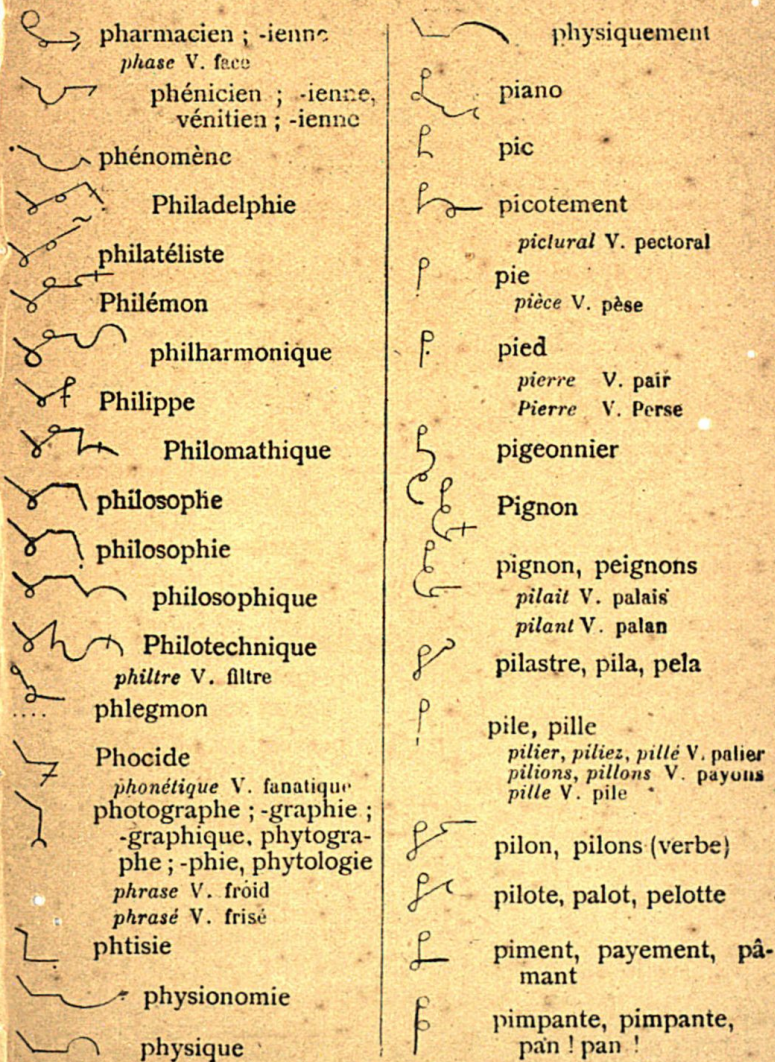 pharmacien ; -ienne
phase V. face
phénicien ; -ienne,
vénitien ; -ienne
phénomène
Philadelphie
philatéliste
Philémon
philharmonique
Philippe
Philomathique
philosophe
philosophie
philosophique
Philotechnique
philtre V. filtre
phlegmon
Phocide
phonétique V. fanatique
photographe ; -graphie ;
-graphique, phytogra-
phe ; -phie, phytologie
phrase V. froid
phrasé V. frisé
phtisie
physionomie
physique
physiquement
piano
pic
picotement
pictural V. pectoral
pie
pièce V. pèse
pied
pierre V. pair
Pierre V. Perse
pigeonnier
Pignon
pignon, peignons
pilait V. palais
pilant V. palan
pilastre, pila, pela
pile, pille
pilier, piliez, pillé V. palier
pilions, pillons V. payons
pille V. pile
pilon, pilons (verbe)
pilote, palot, pelotte
piment, payement, pâ-
mant
pimpante, pimpante,
pan ! pan !